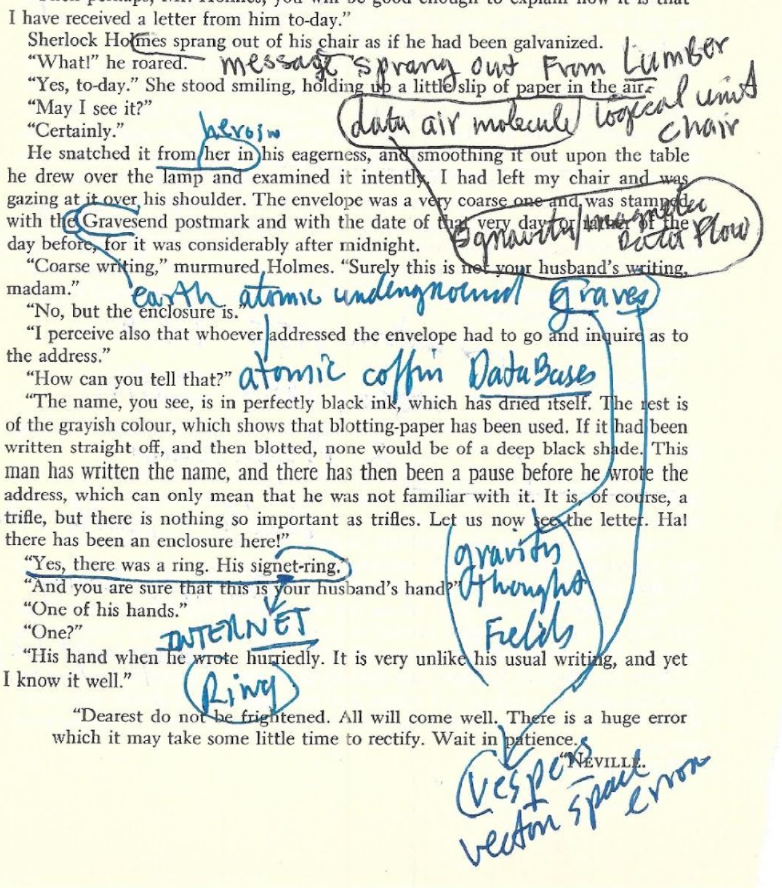 I have received a letter from him to-day.”
Sherlock Holmes sprang out of his chair as if he had been galvanized.
“What!” he roared.
message sprang out From Lumber
“Yes, to-day.” She stood smiling, holding up a little slip of paper in the air.
“May I see it?”
data air molecule
logical unit
chair
“Certainly.”
heroin
He snatched it from her in his eagerness, and smoothing it out upon the table
he drew over the lamp and examined it intently. I had left my chair and was
gazing at it over his shoulder. The envelope was a very coarse one and was stamped
with the Gravesend postmark and with the date of that very day, or of the
Data Flow
day before, for it was considerably after midnight.
“Coarse writing,” murmured Holmes. “Surely this is not your husband’s writing,
madam.”
earth atomic underground graves
“No, but the enclosure is.”
“I perceive also that whoever addressed the envelope had to go and inquire as to
the address.”
“How can you tell that?”
atomic coffin DataBases
“The name, you see, is in perfectly black ink, which has dried itself. The rest is
of the grayish colour, which shows that blotting-paper has been used. If it had been
written straight off, and then blotted, none would be of a deep black shade. This
man has written the name, and there has then been a pause before he wrote the
address, which can only mean that he was not familiar with it. It is, of course, a
trifle, but there is nothing so important as trifles. Let us now see the letter. Ha!
there has been an enclosure here!”
“Yes, there was a ring. His signet-ring.”
gravity
thought
Fields
“And you are sure that this is your husband’s hand?”
“One of his hands.”
“One?”
INTERNET
“His hand when he wrote hurriedly. It is very unlike his usual writing, and yet
I know it well.”
Ring
“Dearest do not be frightened. All will come well. There is a huge error
which it may take some little time to rectify. Wait in patience.
“NEVILLE.
vespers
vector space
error